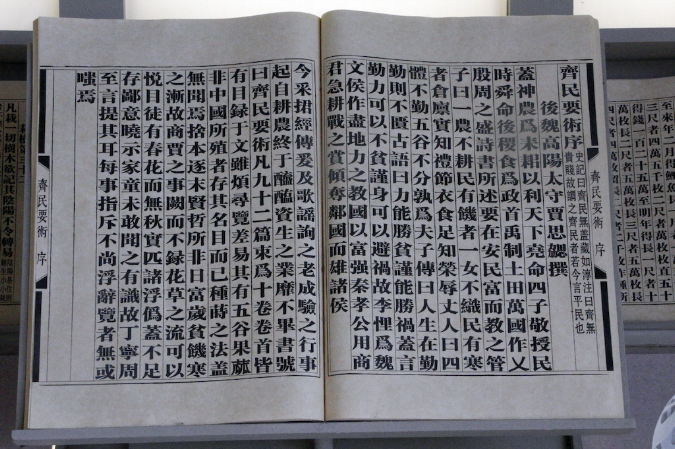 齊民要術序
史記曰齊民無蓋藏如淳注曰齊無
貴賤故謂之齊民者若今言平民也
後魏高陽太守賈思勰撰
蓋神農爲耒耜以利天下堯命四子敬授民
時舜命後稷食爲政首禹制土田萬國作乂
殷周之盛詩書所述要在安民富而教之管
子曰一農不耕民有饑者一女不織民有寒
者倉廩實知禮節衣食足知榮辱丈人曰四
體不勤五谷不分孰爲夫子傳曰人生在勤
勤則不匱古語曰力能勝貧謹能勝禍蓋言
勤力可以不貧謹身可以避禍故李悝爲魏
文侯作盡地力之教國以富强秦孝公用商
君急耕戰之賞傾奪鄰國而雄諸侯
齊民要術 序
今采捃經傳爰及歌謡詢之老成驗之行事
起自耕農終于醯醢資生之業靡不畢書號
曰齊民要術凡九十二篇束爲十卷卷首皆
有目録于文雖煩尋覽差易其有五谷果蓏
非中國所殖者存其名目而已種蒔之法蓋
無聞焉捨本逐末賢哲所非日富歲貧饑寒
之漸故商賈之事闕而不録花草之流可以
悦目徒有春花而無秋實匹諸浮僞蓋不足
存鄙意曉示家童未敢聞之有識故丁寧周
至言提其耳每事指斥不尚浮辭覽者無或
嗤焉
齊民要術 序
凡栽一切樹木欲記其陰陽不令轉易